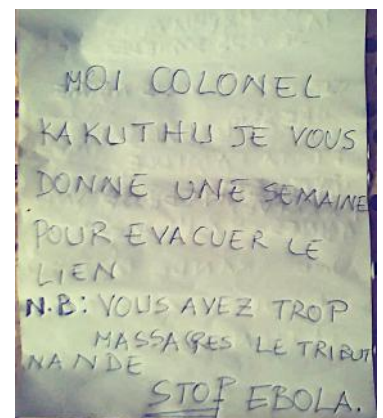 MOI COLONEL
KAKUTHU JE VOUS
DONNE UNE SEMAINE
POUR EVACUER LE
LIEN
N.B: VOUS AVEZ TROP
MASSACRES LE TRIBUT
NANDE
STOP EBOLA.